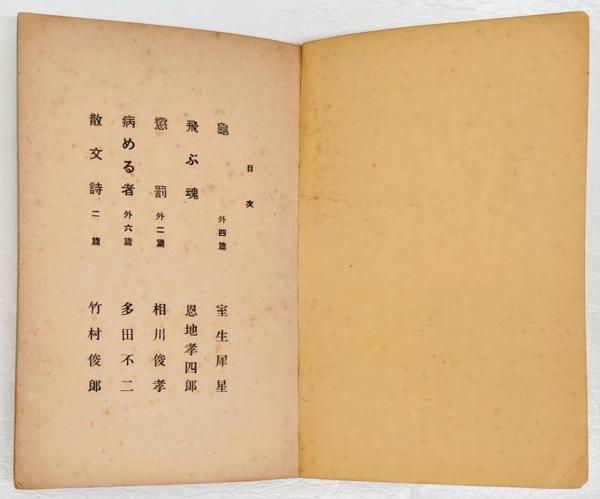 目次
龜 外四篇 室生犀星
飛ぶ魂 恩地孝四郎
懲罰 外二篇 相川俊孝
病める者 外六篇 多田不二
散文詩 二篇 竹村俊郎